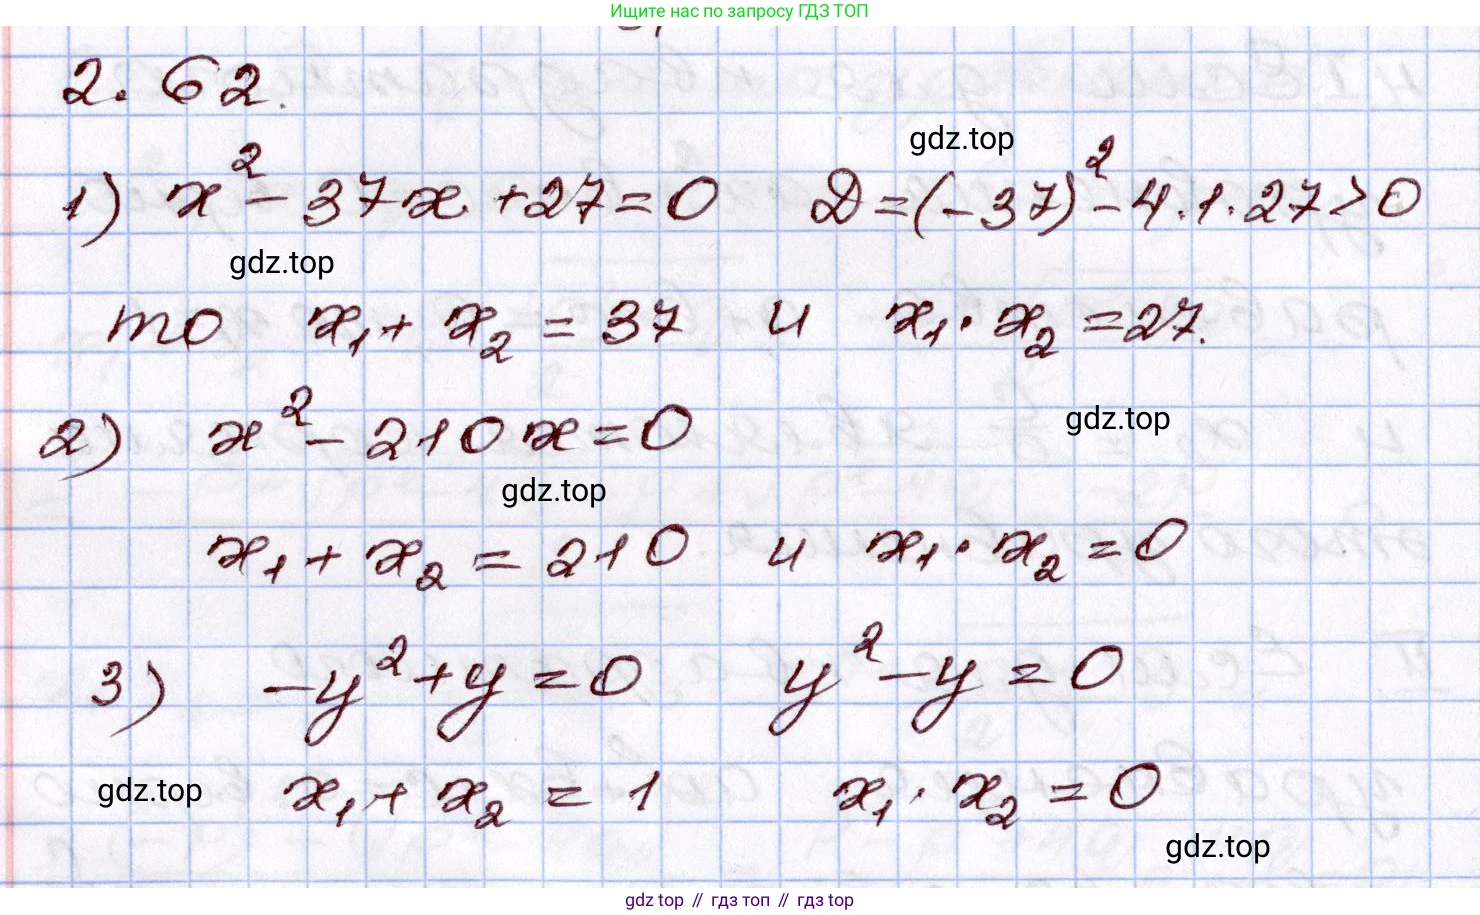 Ищите нас по запросу ГДЗ ТОП
2.62.
gdz.top
1) x² - 37x + 27 = 0 D = (-37)² - 4·1·27 > 0
gdz.top
то x₁ + x₂ = 37 и x₁ · x₂ = 27.
2) x² - 210x = 0
gdz.top
gdz.top
x₁ + x₂ = 210 и x₁ · x₂ = 0
3) -y² + y = 0 y² - y = 0
gdz.top
x₁ + x₂ = 1 x₁ · x₂ = 0
gdz.top
gdz top // гдз топ // гдз top